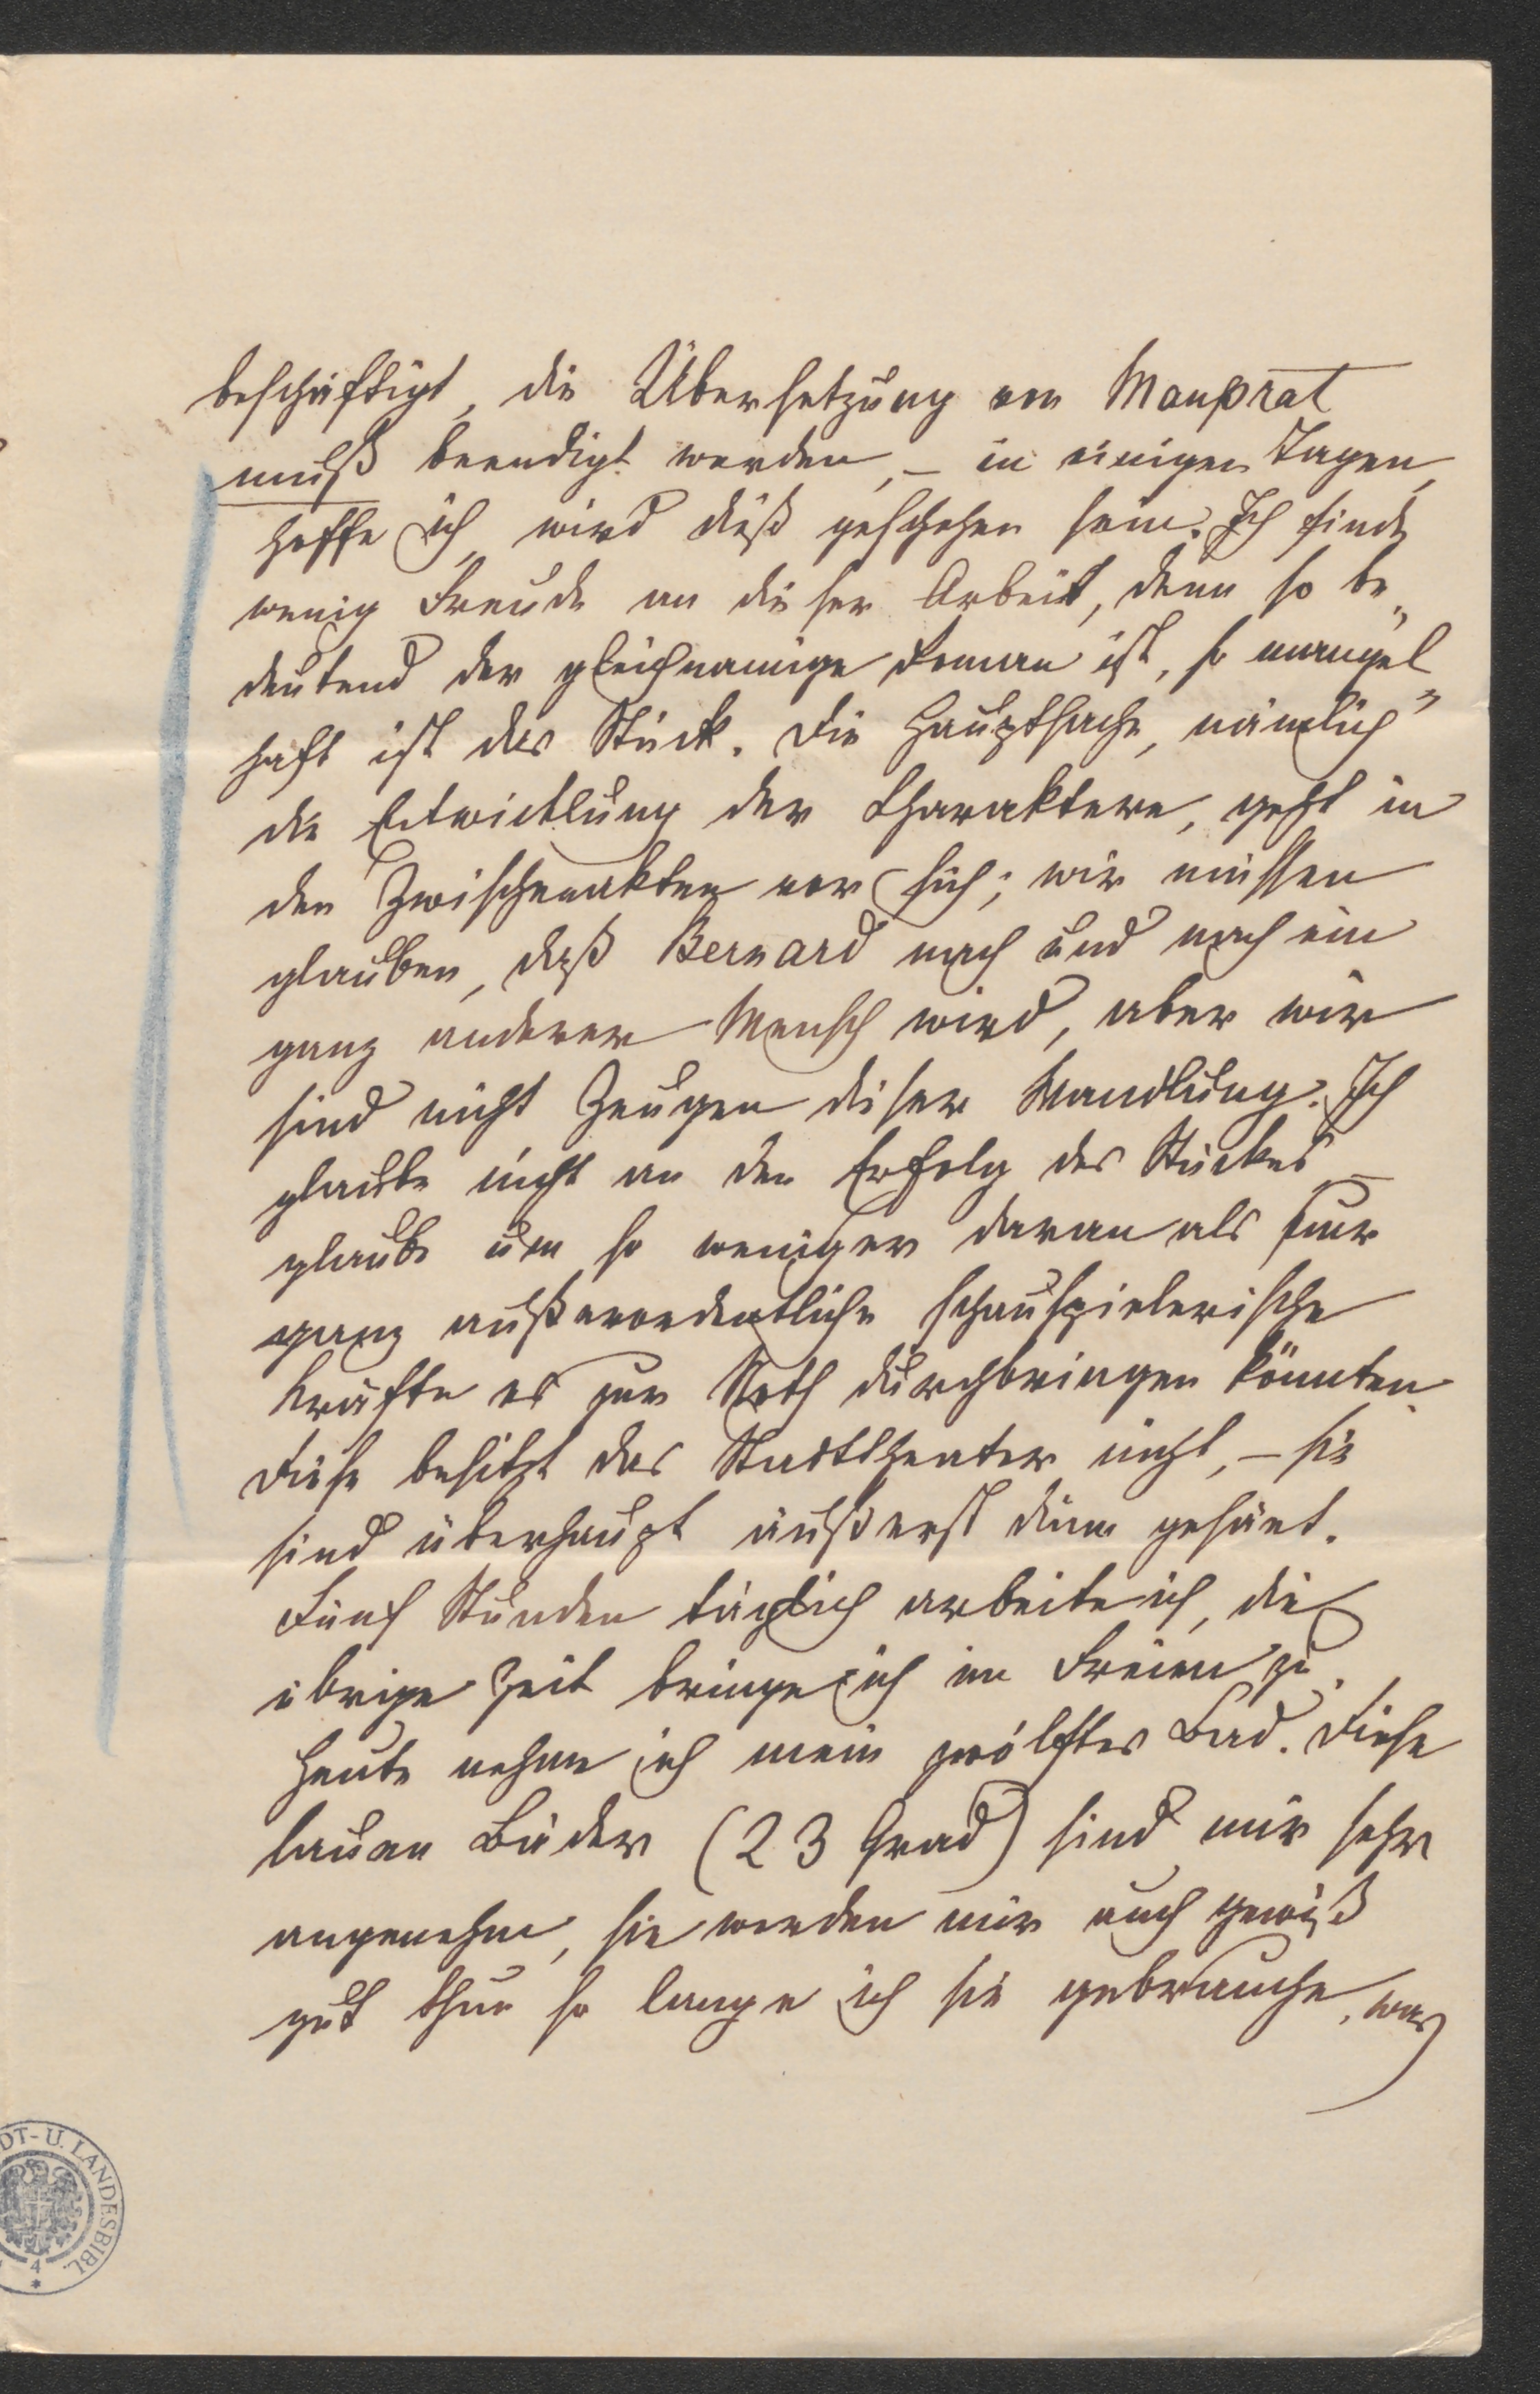 beschäftigt, die Übersetzung von Mauprat
muß beendigt werden, – in einigen Tagen,
hoffe ich, wird dieß geschehen sein. Ich finde
wenig Freude an dieser Arbeit, denn so be„
deutend der gleichnamige Roman ist, so mangel„
haft ist das Stück. Die Hauptsache, nämlich
die Entwicklung der Charaktere, geht in
den Zwischenakten vor sich; wir müssen
glauben, daß Bernard nach und nach ein
ganz anderer Mensch wird, aber wir
sind nicht Zeugen dieser Wandlung. Ich
glaube nicht an den Erfolg des Stückes –
glaube um so weniger daran als nur
ganz außerordentliche schauspielerische
Kräfte es zur Noth durchbringen könnten.
Diese besitzt das Stadttheater nicht, – sie
sind überhaupt äußerst dünn gesäet.
Fünf Stunden täglich arbeite ich, die
übrige Zeit bringe ich im Freien zu.
Heute nehme ich mein zwölftes Bad. Diese
lauen Bäder (23 Grad) sind mir sehr
angenehm, sie werden mir auch gewiß
gut thun so lange ich sie gebrauche, was
DT- U. LANDESBIBL.
4